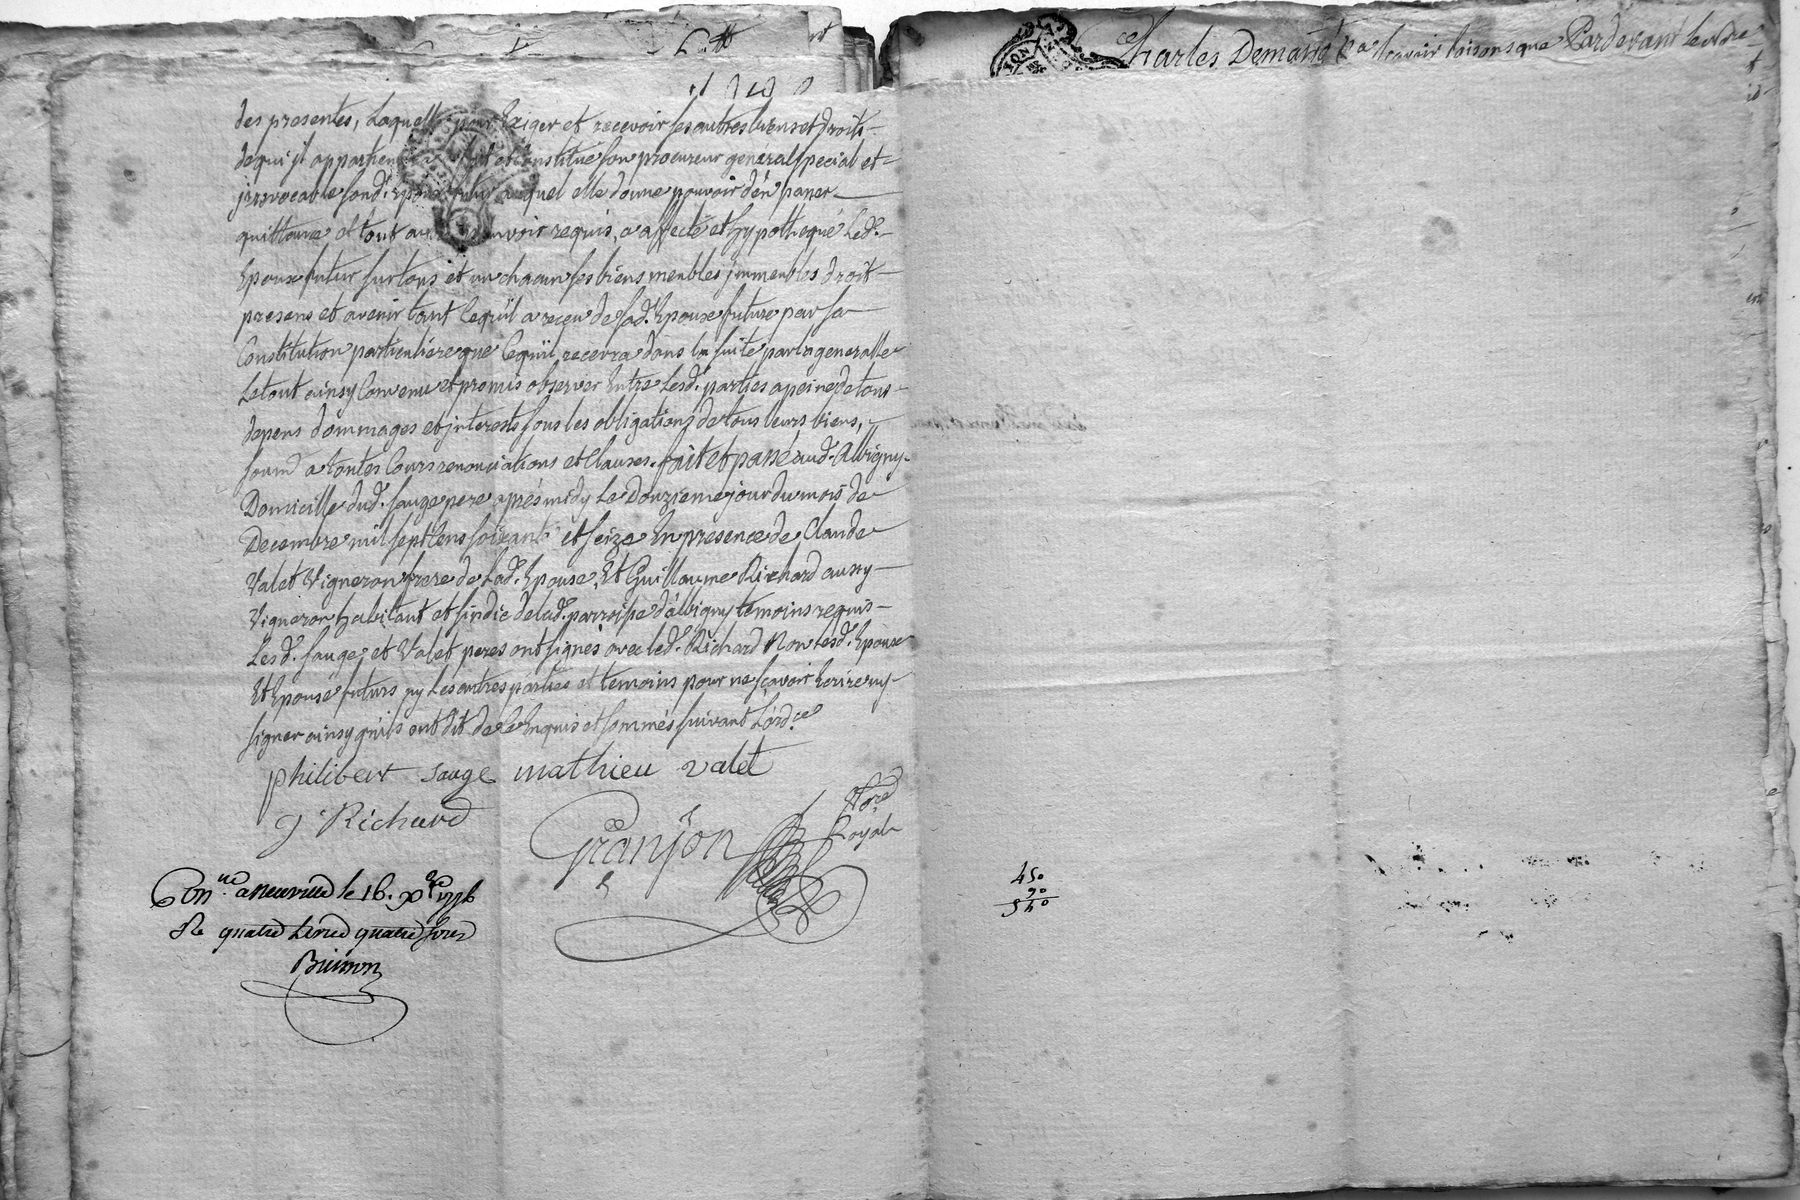 Charles Demans Pardevant le
des presentes, Laquelle pour Exiger et recevoir ses autres biens et droits
de qui jl appartiendra fait et constitue son procureur general special et
jrrevocable sond. Epoux futur auquel elle donne pouvoir d'en passer
quittance et tout autre pouvoir requis, a affecté et hypothequé Led.
Epoux futur sur tous et un chacun ses biens meubles jmmeubles droit
presens et avenir tant Cequil a reçeu de sad. Epouse future par sa
Constitution particuliere que Cequil recevra dans la suite par la generalle
Le tout ainsy Convenu et promis observer Entre Lesd. parties a peine de tous
depens dommages et jnterests sous les obligations de tous leurs biens,
soumd a toutes Cours renonciations et Clauses. fait et passé aud. Albigny
Domicille dud. Sauge pere aprés midy Le Douzieme jour du mois de
Decembre mil sept Cens soixante et seize En presence de Claude
Valet Vigneron frere de Lad. Epouse, Et Guillaume Richard aussy
Vigneron habitant et sindic de lad. parroisse d'albigny temoins requis
Lesd. Sauge et Valet peres ont signés avec led. Richard Non lesd. Epoux
Et Epouse futurs ny Les autres parties et temoins pour ne sçavoir Ecrire ny
signer ainsy quils ont dit de Ce Enquis et sommés suivant L'ord.ce
philibert sauge mathieu valet
g Richard
Granjon No.re
Royal
Con.lé a neuville le 16. Xbre 1776
R. quatre Livres quatre sous
Buisson
450
90
540